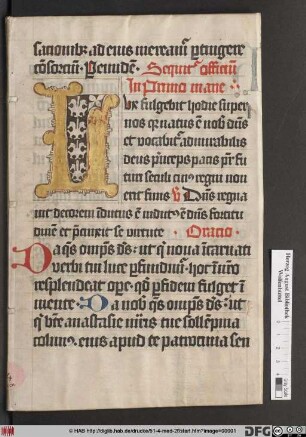 sationibꝰ ad eius mereamur ꝑtingere
ꝯsorciū · Per eundē · Sequit̄ officiū
In Primo mane
Lux fulgebit hodie super
nos qr natus ē nob̄ dn̄s
et vocabit̄ admirabilis
deus prīceps pacis pr̄ fu
turi seculi cuiꝰ regni non
erit finis V Dn̄s regna
uit decorem īdutus ē īdut⁹ ē dn̄s fortitu
dinē et p̄cinxit se virtute · Oracio ·
Da qs om̄ps ds̄ : ut q noua īcarnati
verbi tui luce ꝑfundimur · hoc ī nr̄o
resplendeat oꝑe · qd ꝑ fidem fulget ī
mente · Da nob̄ qs om̄ps ds̄ : ut
q bt̄e anastasie mr̄is tue sollēpnia
colimus · eius apud te patrocinia sen
Herzog August Bibliothek
Wolfenbüttel
© HAB http://diglib.hab.de/drucke/51-4-med-2f/start.htm?image=00001
DFG